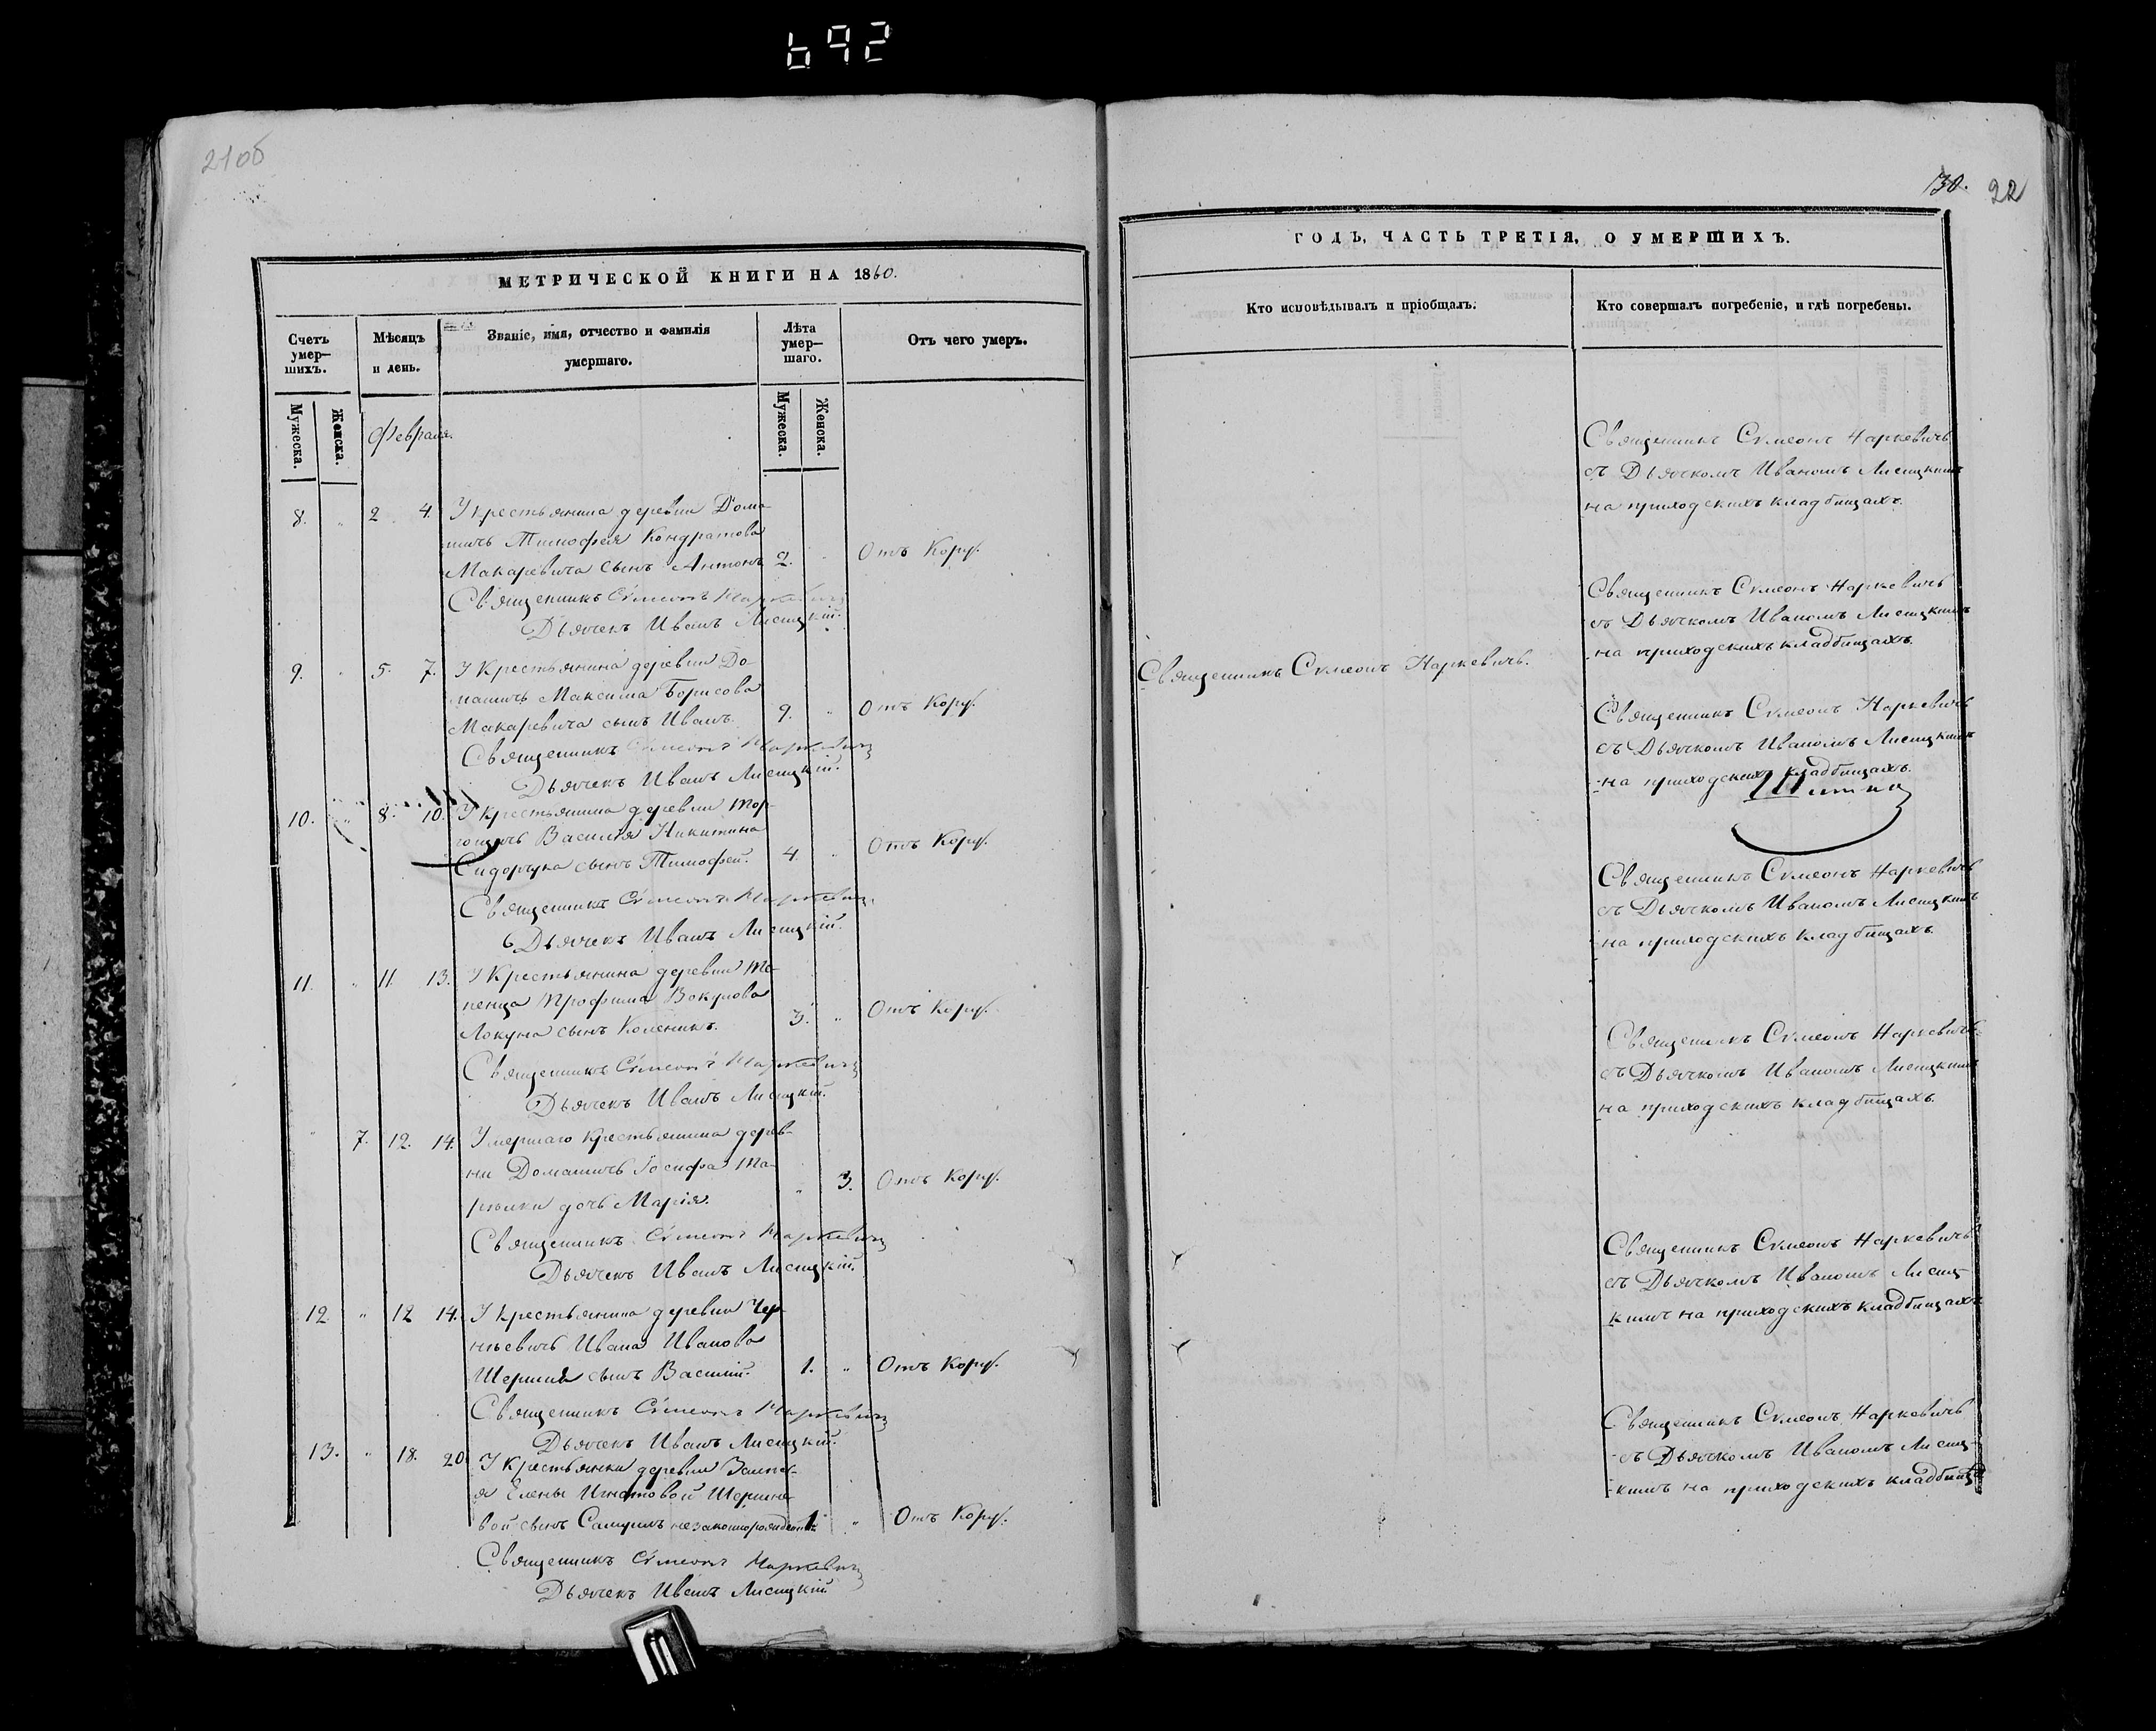 692
21об
МЕТРИЧЕСКОЙ КНИГИ НА 1860.
Счетъ умер—шихъ.
Мѣсяцъ и день.
Званіе, имя, отчество и фамилія умершаго.
Лѣта умер—шаго.
Отъ чего умеръ.
Мужеска.
Женска.
Февраля.
Мужеска.
Женска.
8. " 2 4. У крестьянина деревни Дома-
шичъ Тимофея Кондратова
Макаревича сынъ Антонъ 2. " Отъ Кору.
Священникъ Сѵмеонъ Наркевичъ
Дьячекъ Иванъ Лисицкій.
9. " 5. 7. У Крестьянина деревни До-
машичъ Максима Борисова
Макаревича сынъ Иванъ. 9. " Отъ Кору.
Священникъ Сѵмеонъ Наркевичъ
Дьячекъ Иванъ Лисицкій.
10. " 8. 10. У Крестьянина деревни
Василія Никитина
Сидорчука сынъ Тимофей. 4. " Отъ Кору.
Священникъ Сѵмеонъ Наркевичъ
Дьячекъ Иванъ Лисицкій.
11. " 11. 13. У Крестьянина деревни Те-
пенца Трофима
сынъ 3. " Отъ Кору.
Священникъ Сѵмеонъ Наркевичъ
Дьячекъ Иванъ Лисицкій.
" 7. 12. 14. Умершаго Крестьянина дерев-
ни Домашичъ Іосифа
дочь Марія. " 3. Отъ Кору.
Священникъ Сѵмеонъ Наркевичъ
Дьячекъ Иванъ Лисицкій.
12 " 12 14. У крестьянина деревни Чер-
нѣевичъ Ивана Иванова
сынъ Василій. 1. " Отъ Кору.
Священникъ Сѵмеонъ Наркевичъ
Дьячекъ Иванъ Лисицкій.
13. " 18. 20 У Крестьянки деревни
Елены Игнатовой
сынъ Самуилъ незаконнорожденный 1. " Отъ Кору.
Священникъ Сѵмеонъ Наркевичъ
Дьячекъ Иванъ Лисицкій
130. 22
ГОДЪ, ЧАСТЬ ТРЕТІЯ, О УМЕРШИХЪ.
Кто исповѣдывалъ и пріобщалъ.
Кто совершалъ погребеніе, и гдѣ погребены.
Священникъ Сѵмеонъ Наркевичъ
съ Дьячкомъ Иваномъ Лисицкимъ
на приходскихъ кладбищахъ.
Священникъ Сѵмеонъ Наркевичъ
съ Дьячкомъ Иваномъ Лисицкимъ
на приходскихъ кладбищахъ.
Священникъ Сѵмеонъ Наркевичъ.
Священникъ Сѵмеонъ Наркевичъ
съ Дьячкомъ Иваномъ Лисицкимъ
на приходскихъ кладбищахъ.
Священникъ Сѵмеонъ Наркевичъ
съ Дьячкомъ Иваномъ Лисицкимъ
на приходскихъ кладбищахъ.
Священникъ Сѵмеонъ Наркевичъ
съ Дьячкомъ Иваномъ Лисицкимъ
на приходскихъ кладбищахъ.
Священникъ Сѵмеонъ Наркевичъ
съ Дьячкомъ Иваномъ Лисиц-
кимъ на приходскихъ кладбищахъ
Священникъ Сѵмеонъ Наркевичъ
съ Дьячкомъ Иваномъ Лисиц-
кимъ на приходскихъ кладбища